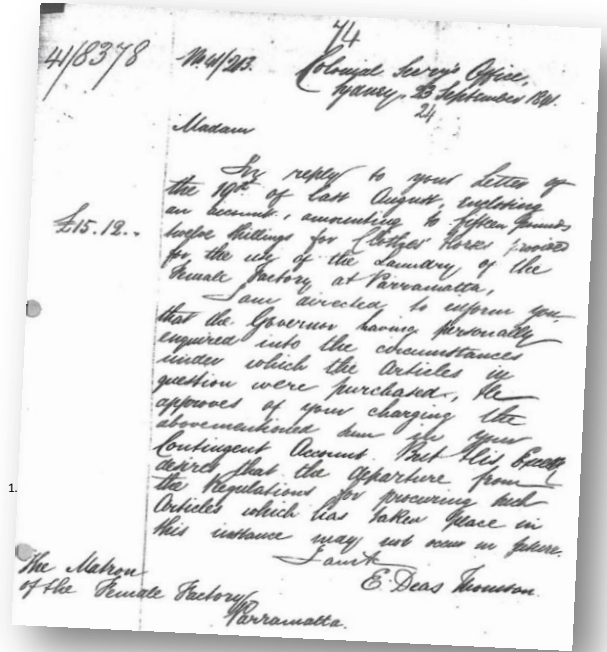 74
41/8378
No 41/213.
Colonial Secry's Office,
Sydney 23 September 1841.
24
Madam
In reply to your Letter of
the 19th of last August, enclosing
an account, amounting to fifteen pounds
£15.12..
twelve shillings for Clothes Horses provided
for the use of the Laundry of the
Female Factory at Parramatta,
I am directed to inform you
that the Governor having personally
enquired into the circumstances
under which the Articles in
question were purchased, He
approves of your charging the
abovementioned sum in your
Contingent Account. But His Excelly
desires that the departure from
1.
the Regulations for procuring such
Articles which has taken place in
this instance may not occur in future.
I am &c
E. Deas Thomson.
The Matron
of the Female Factory
Parramatta.